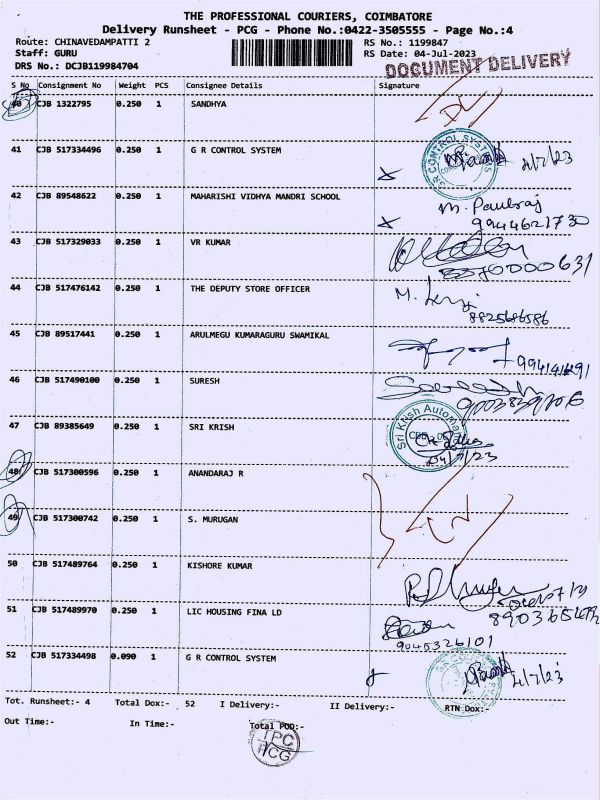 THE PROFESSIONAL COURIERS, COIMBATORE
Delivery Runsheet - PCG - Phone No.:0422-3505555 - Page No.:4
Route: CHINAVEDAMPATTI 2 RS No.: 1199847
Staff: GURU RS Date: 04-Jul-2023
DRS No.: DCJB119984704 DOCUMENT DELIVERY
S No Consignment No Weight PCS Consignee Details Signature
40 CJB 1322795 0.250 1 SANDHYA
41 CJB 517334496 0.250 1 G R CONTROL SYSTEM 4/7/23
42 CJB 89548622 0.250 1 MAHARISHI VIDHYA MANDRI SCHOOL M. Paulraj
9944621730
43 CJB 517329033 0.250 1 VR KUMAR
44 CJB 517476142 0.250 1 THE DEPUTY STORE OFFICER
8825686586
45 CJB 89517441 0.250 1 ARULMEGU KUMARAGURU SWAMIKAL
46 CJB 517490100 0.250 1 SURESH
47 CJB 89385649 0.250 1 SRI KRISH Sri Krish Automa
04/7/23
48 CJB 517300596 0.250 1 ANANDARAJ R
49 CJB 517300742 0.250 1 S. MURUGAN
50 CJB 517489764 0.250 1 KISHORE KUMAR
51 CJB 517489970 0.250 1 LIC HOUSING FINA LD
9045326101
52 CJB 517334498 0.090 1 G R CONTROL SYSTEM 4/7/23
Tot. Runsheet:- 4 Total Dox:- 52 I Delivery:- II Delivery:- RTN Dox:-
Out Time:- In Time:- Total POD:-
TPC
PCG